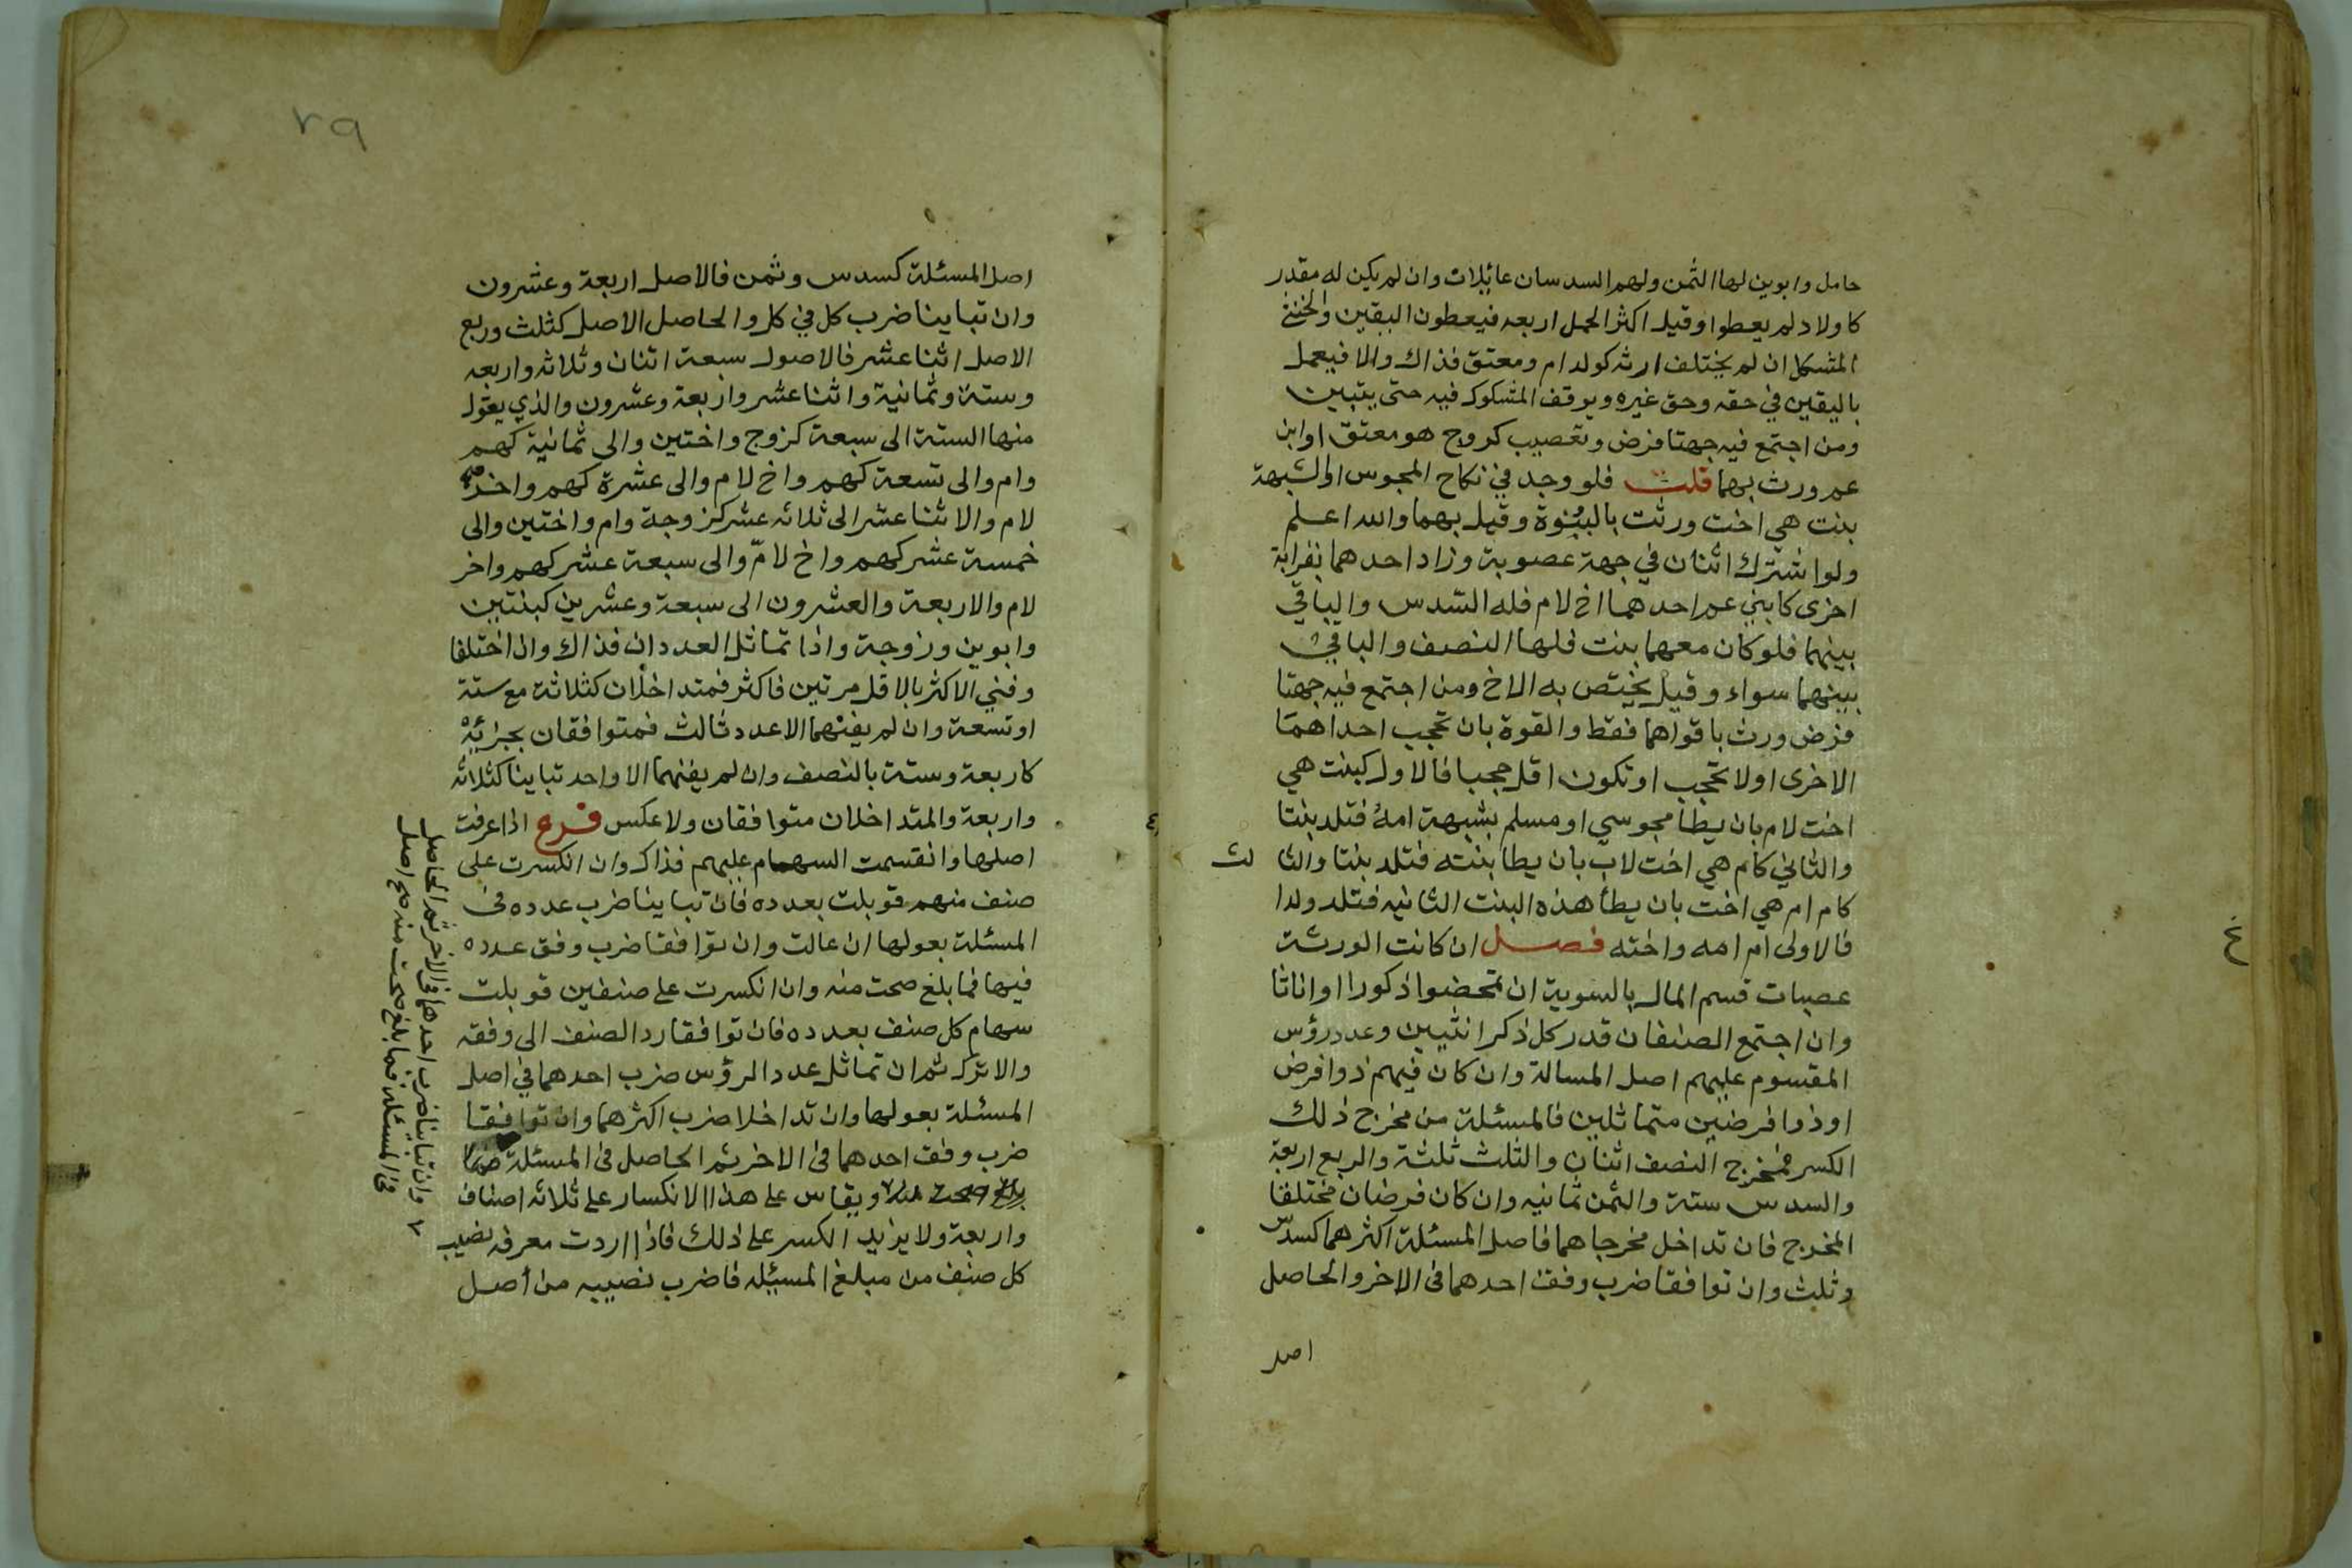 حامل وابوين لها الثمن ولهم السدسان عائلات وان لم يكن له مقدر
كاولاد لم يعطوا وقيل اكثر الحمل اربعه فيعطون اليقين والخنثى
المشكل ان لم يختلف ارثه كولد ام ومعتق فذاك والا فيعمل
باليقين في حقه وحق غيره ويوقف المشكوك فيه حتى يتبين
ومن اجتمع فيه جهتا فرض وتعصيب كزوج هو معتق او ابن
عم ورث بهما قلت فلو وجد في نكاح المجوس او الشبهة
بنت هي اخت ورثت بالبنوة وقيل بهما والله اعلم
ولو اشترك اثنان في جهة عصوبة وزاد احدهما بقرابة
اخرى كابني عم احدهما اخ لام فله السدس والباقي
بينهما فلو كان معهما بنت فلها النصف والباقي
بينهما سواء وقيل يختص به الاخ ومن اجتمع فيه جهتا
فرض ورث باقواهما فقط والقوة بان تحجب احداهما
الاخرى اولا تحجب او تكون اقل حجبا فالاول كبنت هي
اخت لام بان يطا مجوسي او مسلم بشبهة امه فتلد بنتا
والثاني كام هي اخت لاب بان يطا بنته فتلد بنتا والثا لث
كام ام هي اخت بان يطأ هذه البنت الثانيه فتلد ولدا
فالاولى ام امه واخته فصل ان كانت الورثة
عصبات قسم المال بالسوية ان تمحضوا ذكورا او اناثا
وان اجتمع الصنفان قدر كل ذكر انثيين وعدد رؤس
المقسوم عليهم اصل المسالة وان كان فيهم ذوا فرض
او ذوا فرضين متماثلين فالمسئلة من مخرج ذلك
الكسر فمخرج النصف اثنان والثلث ثلثة والربع اربعة
والسدس ستة والثمن ثمانيه وان كان فرضان مختلفا
المخرج فان تداخل مخرجاهما فاصل المسئلة اكثرهما كسدس
وثلث وان توافقا ضرب وفق احدهما فى الاخر والحاصل
اصل
٢٩
اصل المسئلة كسدس وثمن فالاصل اربعة وعشرون
وان تباينا ضرب كل في كل والحاصل الاصل كثلث وربع
الاصل اثنا عشر فالاصول سبعة اثنان وثلاثه واربعه
وستة وثمانية واثنا عشر واربعة وعشرون والذي يعول
منها الستة الى سبعة كزوج واختين والى ثمانية كهم
وام والى تسعة كهم واخ لام والى عشرة كهم واخر
لام والاثنا عشر الى ثلاثه عشر كزوجة وام واختين والى
خمسة عشر كهم واخ لام والى سبعة عشر كهم واخر
لام والاربعة والعشرون الى سبعة وعشرين كبنتين
وابوين وزوجة واذا تماثل العددان فذاك وان اختلفا
وفني الاكثر بالاقل مرتين فاكثر فمتداخلان كثلاثة مع ستة
او تسعة وان لم يفنهما الا عدد ثالث فمتوافقان بجزئه
كاربعة وستة بالنصف وان لم يفنهما الا واحد تباينا كثلاثه
واربعة والمتداخلان متوافقان ولا عكس فرع اذا عرفت
اصلها وانقسمت السهام عليهم فذاك وان انكسرت على
صنف منهم قوبلت بعدده فان تباينا ضرب عدده فى
المسئلة بعولها ان عالت وان توافقا ضرب وفق عدده
فيها فما بلغ صحت منه وان انكسرت على صنفين قوبلت
سهام كل صنف بعدده فان توافقا رد الصنف الى وفقه
والا ترك ثم ان تماثل عدد الرؤس ضرب احدهما في اصل
المسئلة بعولها وان تداخلا ضرب اكثرهما وان توافقا
ضرب وفق احدهما فى الاخر ثم الحاصل فى المسئلة فما
بلغ صحت منه ويقاس على هذا الانكسار على ثلاثه اصناف
واربعة ولا يزيد الكسر على ذلك فاذا اردت معرفه نصيب
كل صنف من مبلغ المسئله فاضرب نصيبه من أصل
وان تباينا ضرب احدهما فى الاخر ثم الحاصل
فى المسئلة فما بلغ صحت منه صح اصل